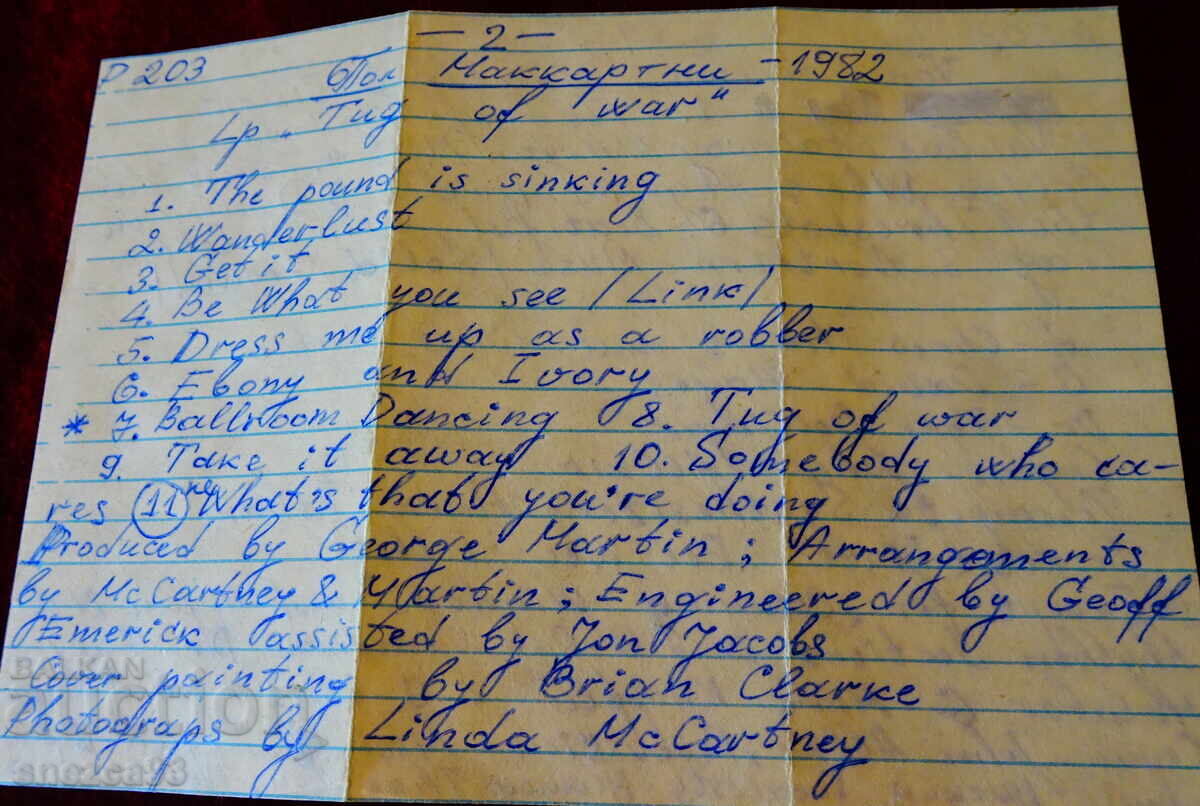 — 2 —
P 203 Пол Маккартни - 1982
Lp „Tug of war"
1. The pound is sinking
2. Wanderlust
3. Get it
4. Be What you see /Link/
5. Dress me up as a robber
6. Ebony and Ivory
* 7. Ballroom Dancing 8. Tug of war
9. Take it away 10. Somebody who ca-
res 11 What's that you're doing
Produced by George Martin; Arrangements
by McCartney & Martin; Engineered by Geoff
Emerick assisted by Jon Jacobs
Cover painting by Brian Clarke
Photograps by Linda McCartney
BALKAN
auction
snezea93